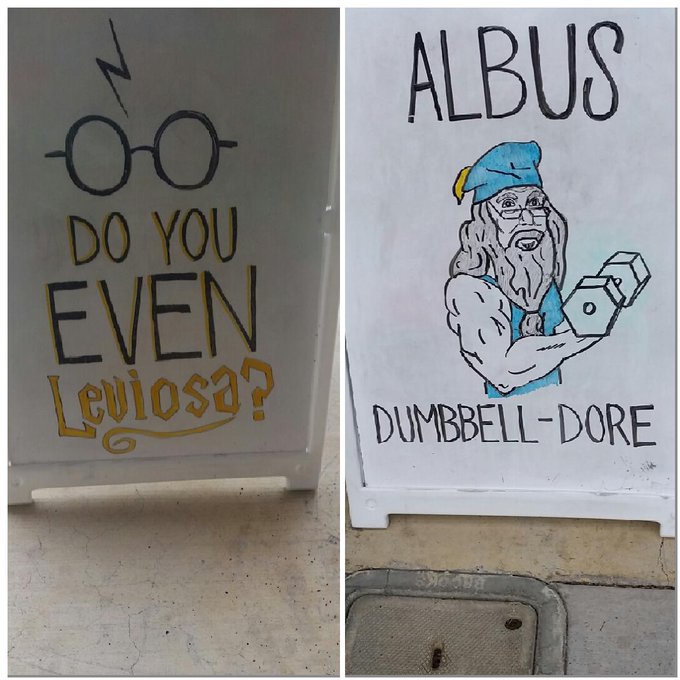 DO YOU
EVEN
Leviosa?
ALBUS
DUMBBELL-DORE